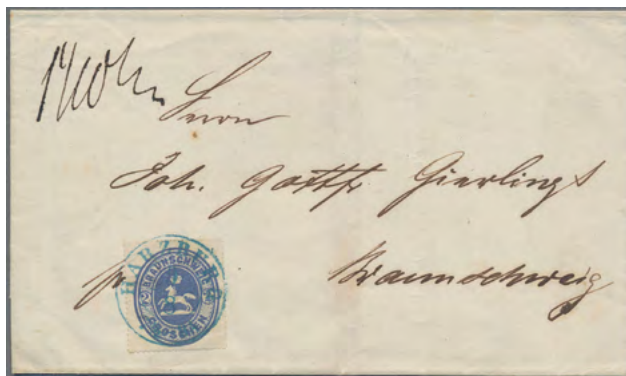 Herrn
Joh. Gottfr. Gierlings
HARZBURG
BRAUNSCHWEIG
GROSCHEN
Braunschweig